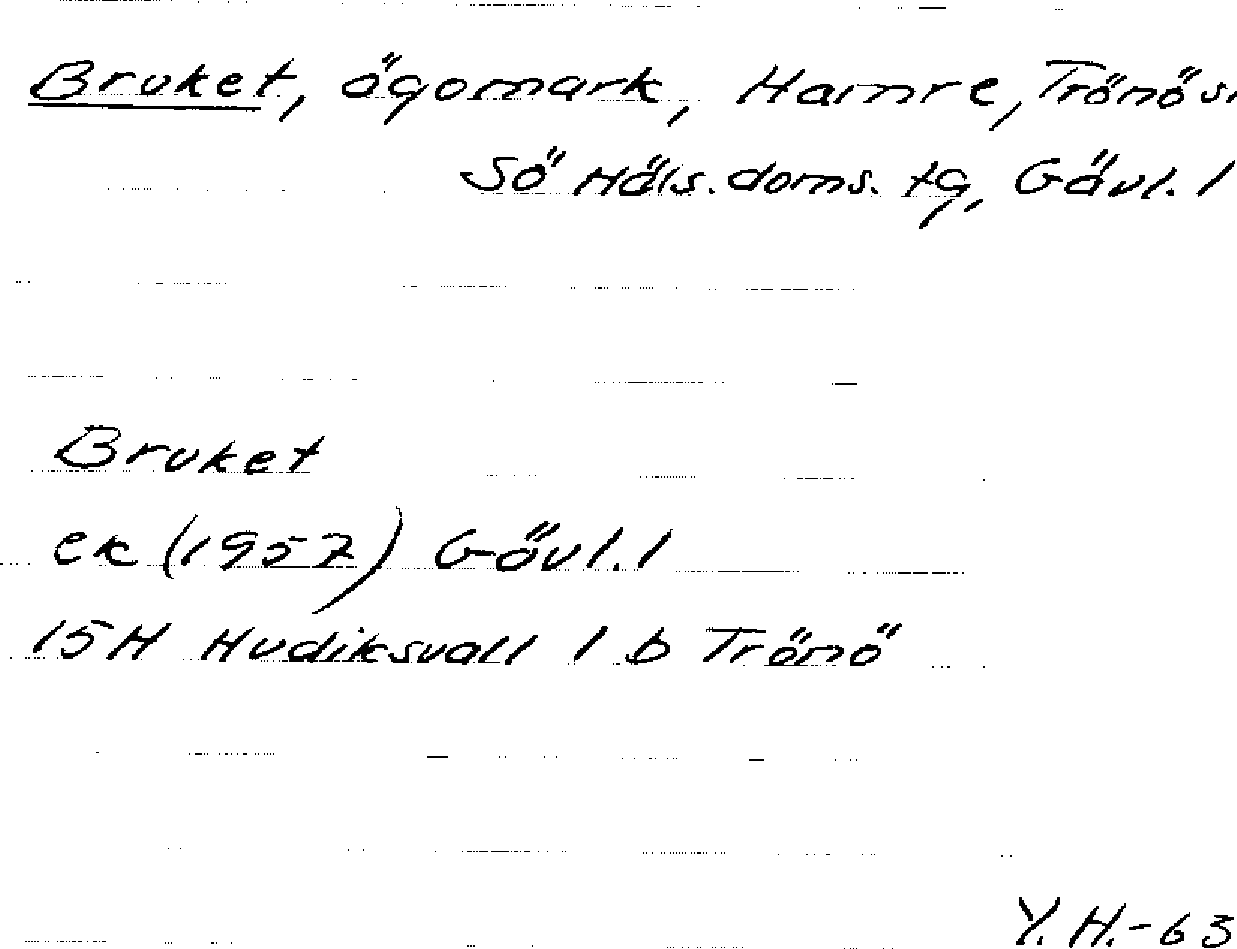 Bruket, ägomark, Hamre, Trönö sn
Sö Häls. doms. tg, Gävl. l
Bruket
ek (1957) Gävl. l
15H Hudiksvall 1 b Trönö
Y. H.-63